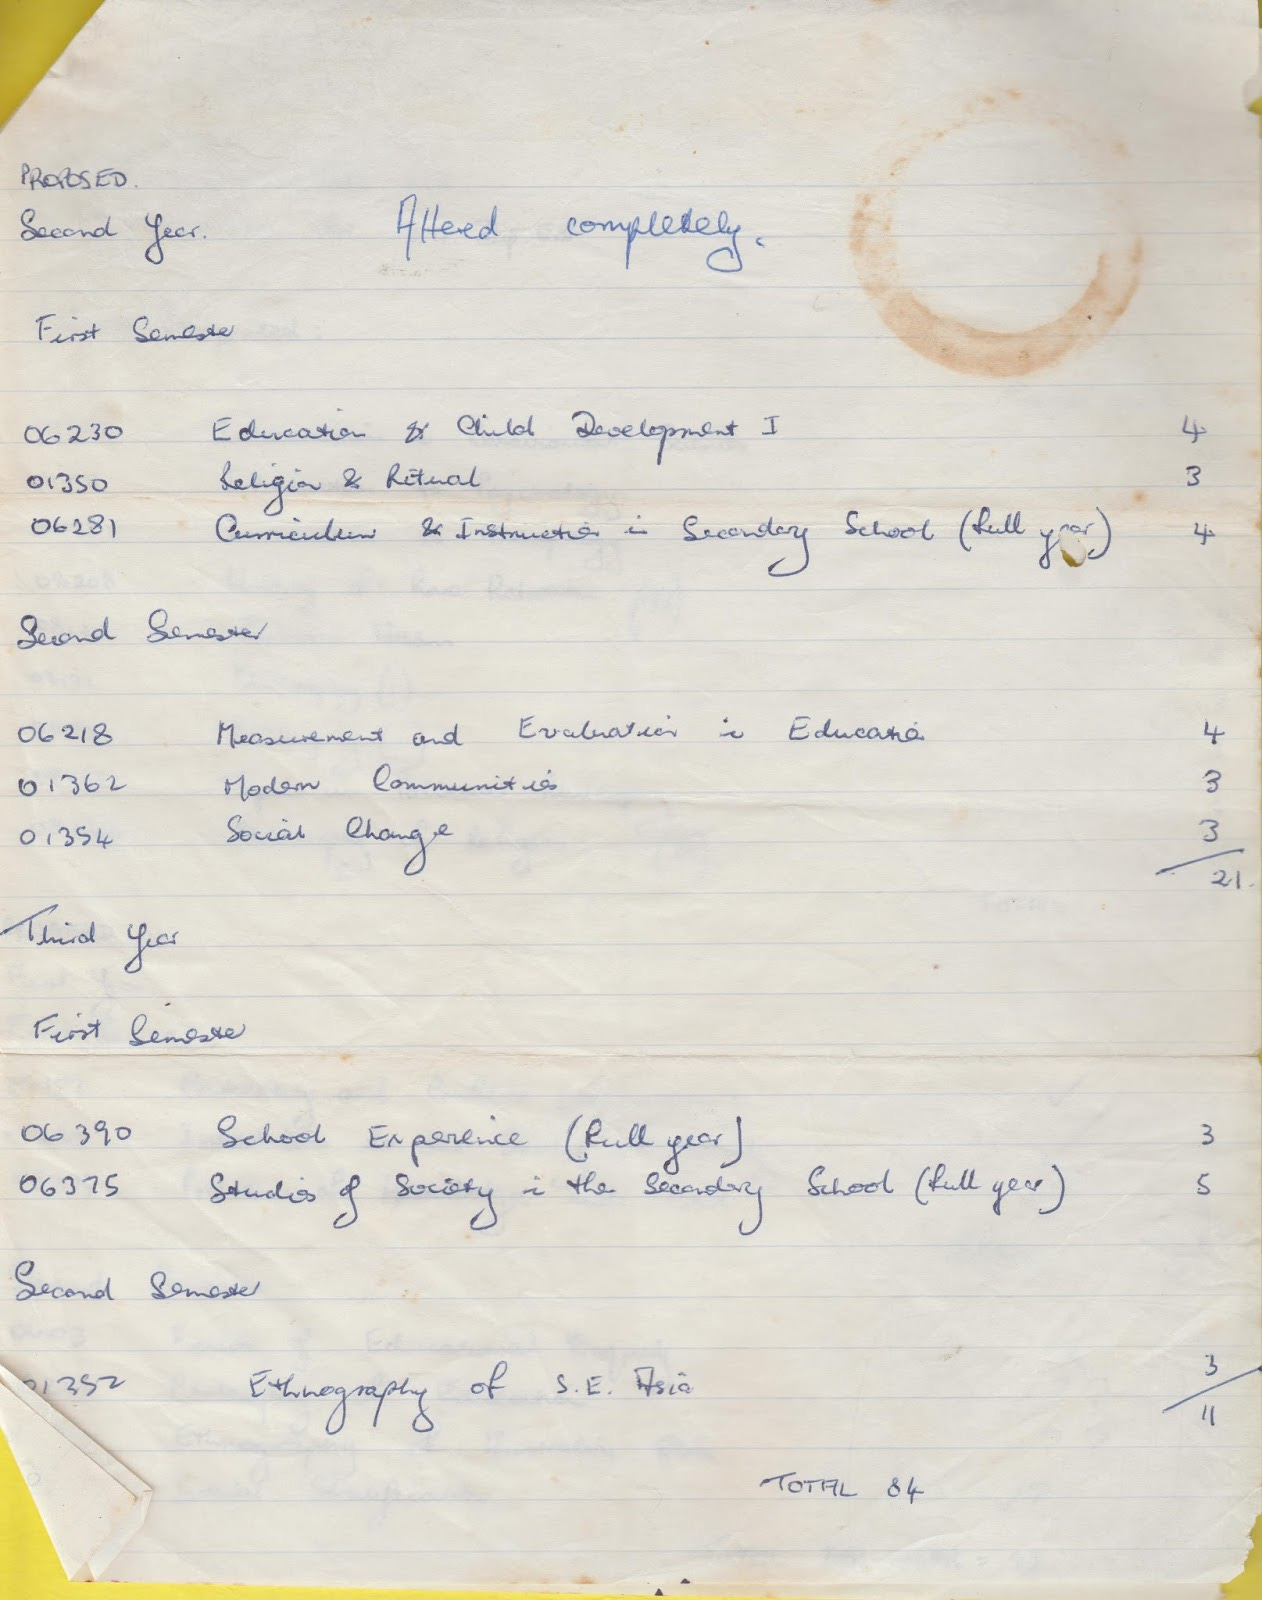 PROPOSED.
Second Year. Altered completely.
First Semester
06230 Education & Child Development I 4
01350 Religion & Ritual 3
06281 Curriculum & Instruction in Secondary School (full year) 4
Second Semester
06218 Measurement and Evaluation in Education 4
01362 Modern Communities 3
01354 Social Change 3
21.
Third Year
First Semester
06390 School Experience (full year) 3
06375 Studies of Society in the Secondary School (full year) 5
Second Semester
01352 Ethnography of S.E. Asia 3
11
TOTAL 84